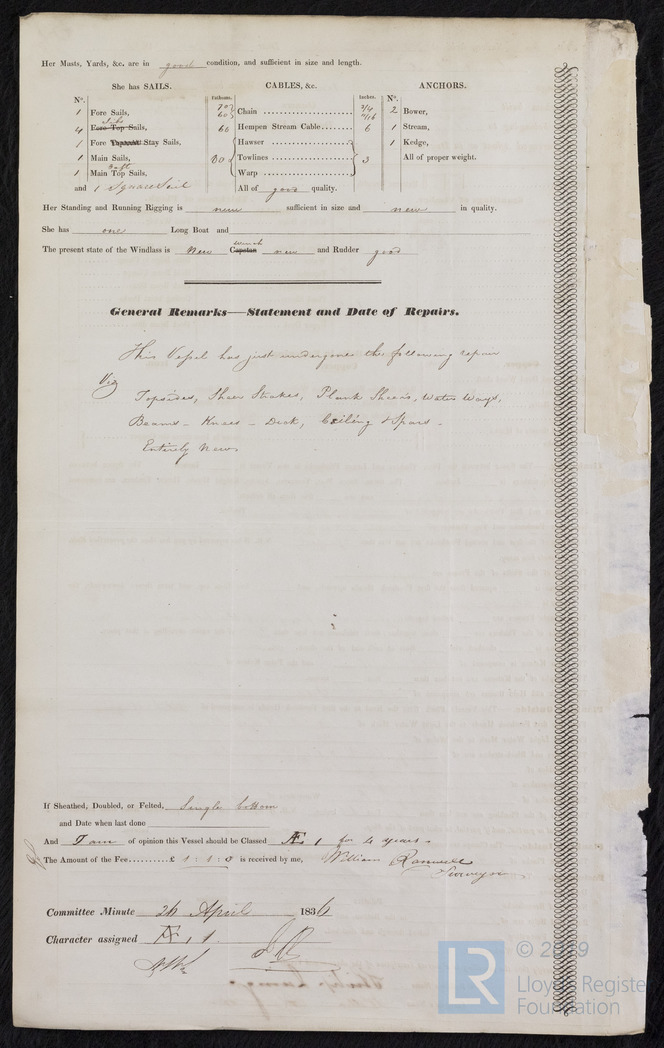 Her Masts, Yards, &c. are in good condition, and sufficient in size and length.
She has SAILS. CABLES, &c. ANCHORS.
N°. Fathoms. Inches. N°.
1 Fore Sails, 70 60 Chain 3/4 11/16 2 Bower,
4 Fore Top Sails, Jibs 60 Hempen Stream Cable 6 1 Stream,
1 Fore Topmast Stay Sails, Hawser 1 Kedge,
1 Main Sails, 80 Towlines 3 All of proper weight.
1 Main Top Sails, Gaft Warp
and 1 Square Sail All of good quality.
Her Standing and Running Rigging is new sufficient in size and new in quality.
She has one Long Boat and
The present state of the Windlass is New Capstan Winch new and Rudder good
General Remarks—Statement and Date of Repairs.
This Vessel has just undergone the following repair
Viz
Topsides, Sheer Strakes, Plank Sheers, Water Ways,
Beams - Knees - Deck, Ceiling & Spars -
Entirely New
If Sheathed, Doubled, or Felted, Single bottom
and Date when last done
And I am of opinion this Vessel should be Classed Æ 1 for 4 years -
The Amount of the Fee £ 1 : 1 : 0 is received by me, William
Surveyor
Committee Minute 26 April 1836
Character assigned Æ 1.
© 2019
LR
Lloyd's Register
Foundation